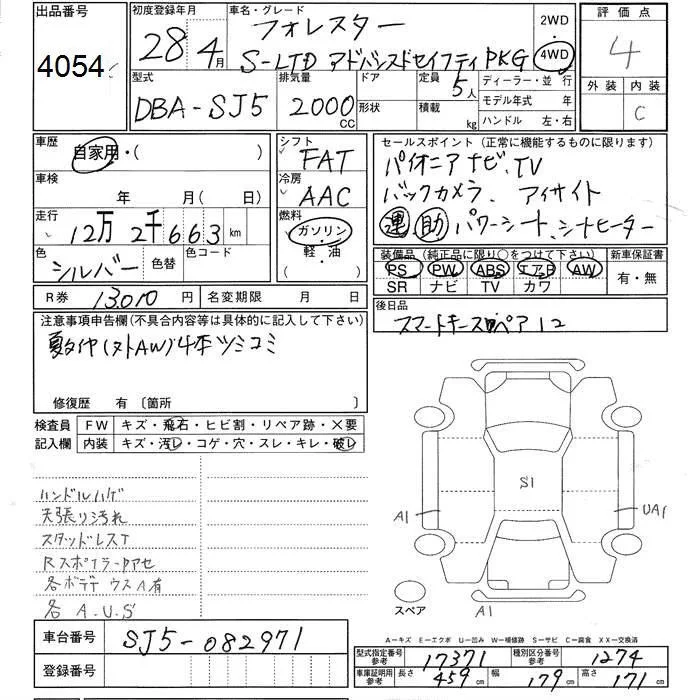 出品番号
4054
初度登録年月
28年4月
車名・グレード
フォレスター
S-LTD アドバンスドセイフティPKG
2WD
・
4WD
評価点
4
外装 内装
C
型式
DBA-SJ5
排気量
2000 CC
ドア
形状
定員
5人
積載
kg
ディーラー・並 行
モデル年式 年
ハンドル 左・右
車歴
自家用・( )
車検
年 月( 日)
走行
12万2千663 km
色
シルバー
色替
色コード
シフト
FAT
冷房
AAC
燃料
ガソリン
軽・油
セールスポイント（正常に機能するものに限ります）
パイオニアナビ、TV
バックカメラ、アイサイト
運 助 パワーシート、シートヒーター
装備品（純正品に限り○をつけて下さい）
PS PW ABS エアB AW
SR ナビ TV カワ
新車保証書
有・無
R券 13010 円
名変期限 月 日
後日品
注意事項申告欄（不具合内容等は具体的に記入して下さい）
夏タイヤ(ヌトAW)4本ツミコミ
修復歴 有 〔箇所 〕
検査員
記入欄
FW キズ・飛石・ヒビ割・リペア跡・X要
内装 キズ・汚レ・コゲ・穴・スレ・キレ・破レ
ハンドルハゲ
天張り汚れ
スタッドレスT
Rスポイラーアセ
各ボデテ ウスA有
各 A.U.S
S1
A1
UA1
A1
スペア
A－キズ E－エクボ U－凹み W－補修跡 S－サビ C－腐食 XX－交換済
車台番号
SJ5-082971
登録番号
型式指定番号
参考
17371
種別区分番号
参考
1274
車庫証明用
参考
長さ 459 cm 幅 179 cm 高さ 171 cm